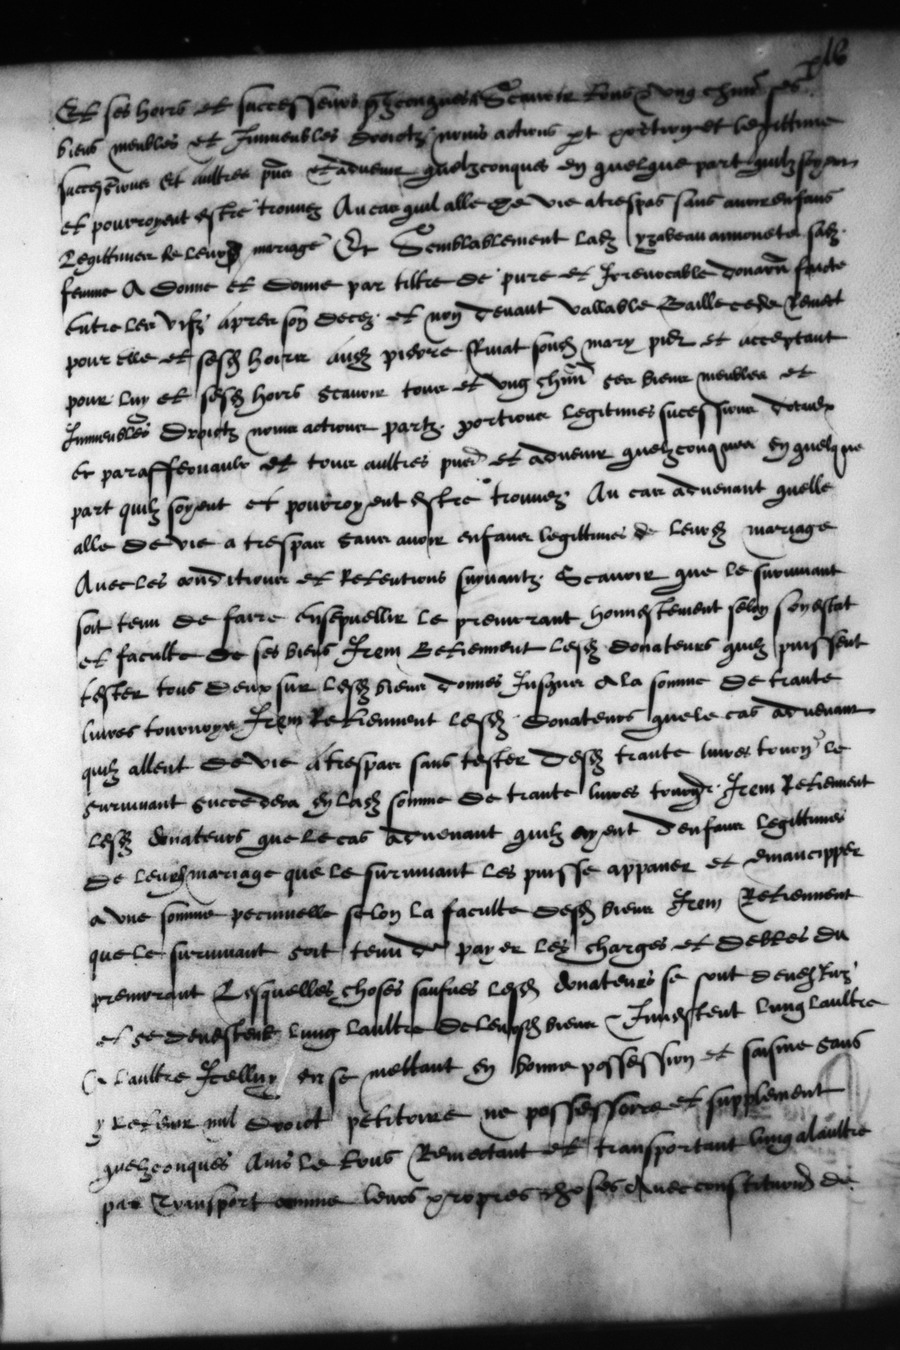 Et ses hoirs et successeurs quelzconques Scavoir tous & ung chūn ses
biens meubles et Immeubles droictz noms actions pt portion et legittime
successions Et aultres pñs et advenir quelzconques en quelque part quilz soyent
et pourroyent estre trouvez Au cas quil alle de vie a trespas sans avoir enfans
legittimes de leurd mariage Et Semblablement lad yzabeau sad
femme A donne et donne par tiltre de pure et Irrevocable donaōn faicte
entre les vifz apres son deces et non devant vallable Baille cede Remect
pour elle et sesd hoirs aud pierre sond mary pñt et acceptant
pour luy et sesd hoirs scavoir tous et ung chūn ses biens meubles et
Immeubles droictz noms actions partz portions legitimes sucessions
et paraffernaulx et tous aultres pñs et advenir quelzconques en quelque
part quilz soyent et pourroyent estre trouvez Au cas advenant quelle
alle de vie a trespas sans avoir enfans legittimes de leurd mariage
Avec les conditions et Retentions suyvantz Scavoir que le survivant
soit tenu de faire ensepvellir le premorant honnestement selon son estat
et faculte de ses biens Item Retiennent lesd donateurs quilz puissent
tester tous deux sur lesd biens donnes Jusques a la somme de trante
livres tournoys Item Retiennent lesd donateurs que le cas advenant
quilz allent de vie a trespas sans tester desd trante livres tourn le
survivant succedera en lad somme de trante livres tourn Item Retiennent
lesd donateurs que le cas advenant quilz ayent denfans legittimes
de leurd mariage que le survivant les puisse appaner et emancipper
a une somme pecunielle selon la faculte desd biens Item Retiennent
que le survivant soit tenu de payer les charges et debtes du
premorant Lesquelles choses saufves lesd donateurs se sont
et se devestent lung laultre de leursd biens & Investent lung laultre
& laultre Icelluy en se mettant en bonne possession et saisine sans
y Retenir nul droict petitoire ne possessoire et supplement
quelzconques Ains le tous Remectant et transportant lung a laultre
par transport comme leurs propres choses Avec constitution de